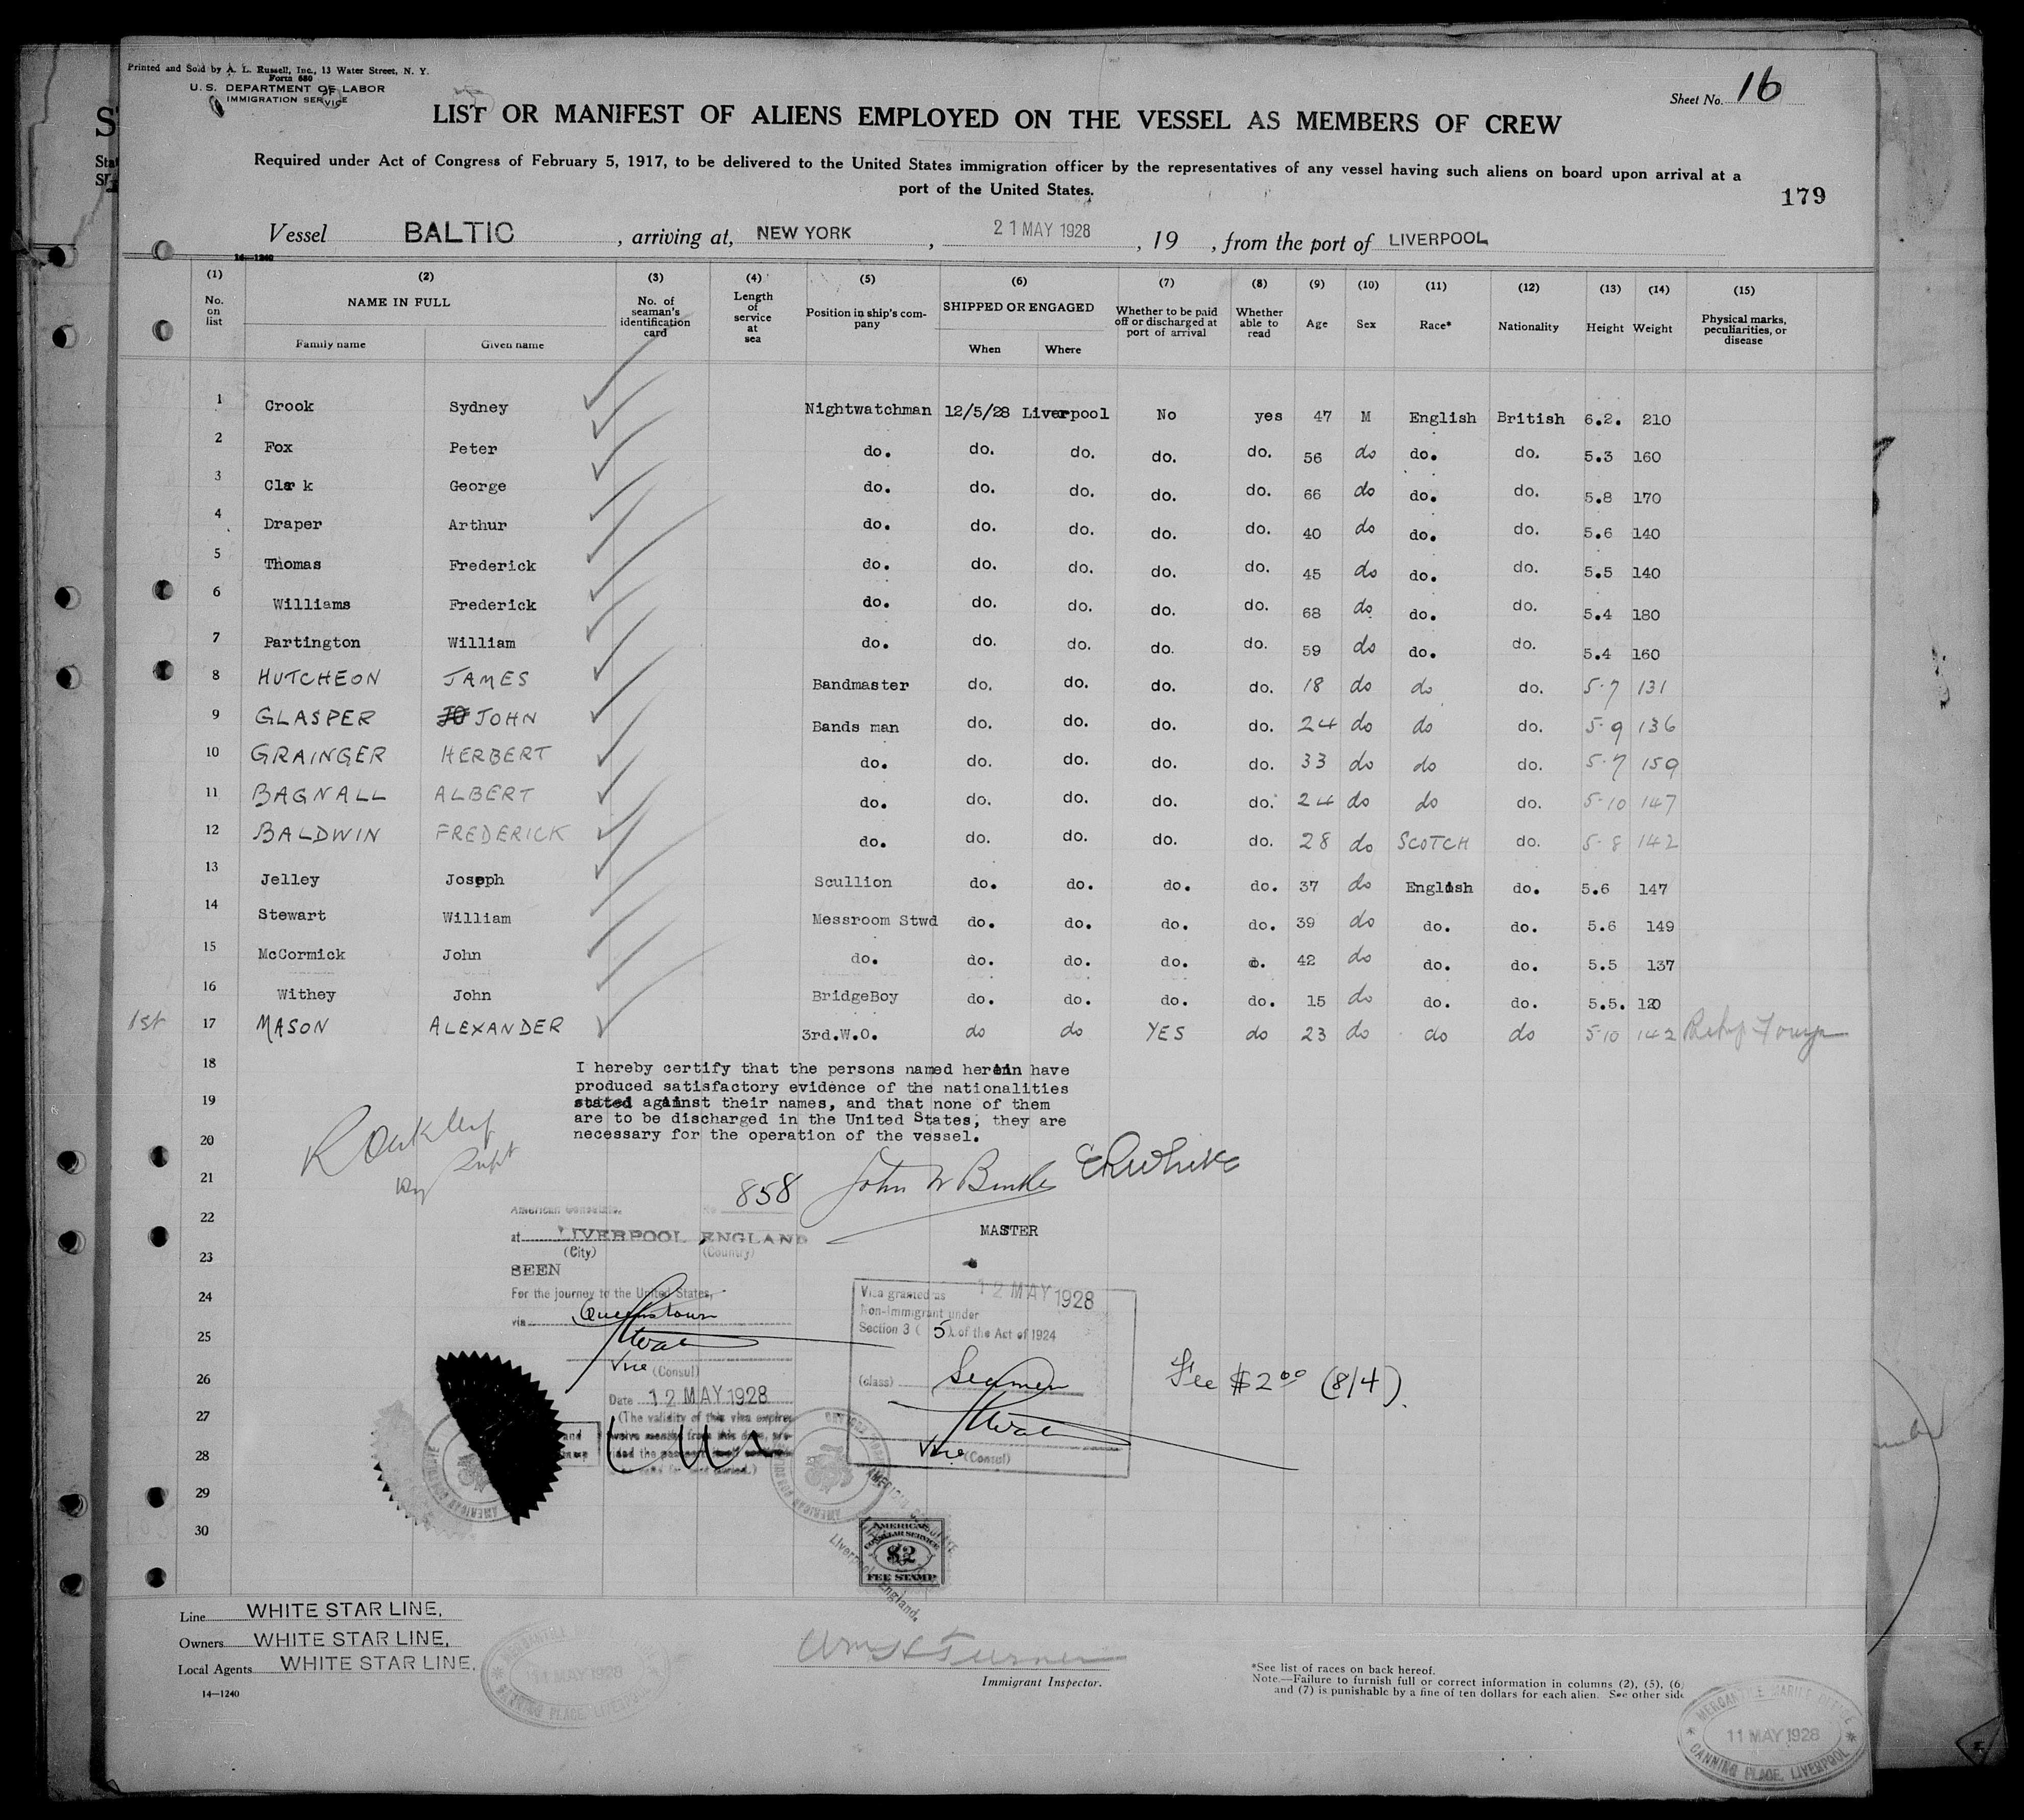 Printed and Sold by A. L. Russell, Inc., 13 Water Street, N. Y.
Form 680
U. S. DEPARTMENT OF LABOR
IMMIGRATION SERVICE
Sheet No. 16
LIST OR MANIFEST OF ALIENS EMPLOYED ON THE VESSEL AS MEMBERS OF CREW
Required under Act of Congress of February 5, 1917, to be delivered to the United States immigration officer by the representatives of any vessel having such aliens on board upon arrival at a
port of the United States.
179
Vessel BALTIC, arriving at, NEW YORK, 21 MAY 1928, 19 , from the port of LIVERPOOL
14—1240
(1) (2) (3) (4) (5) (6) (7) (8) (9) (10) (11) (12) (13) (14) (15)
No. on list NAME IN FULL Family name Given name No. of seaman's identification card Length of service at sea Position in ship's company SHIPPED OR ENGAGED When Where Whether to be paid off or discharged at port of arrival Whether able to read Age Sex Race* Nationality Height Weight Physical marks, peculiarities, or disease
1 Crook Sydney Nightwatchman 12/5/28 Liverpool No yes 47 M English British 6.2. 210
2 Fox Peter do. do. do. do. do. 56 do do. do. 5.3 160
3 Clark George do. do. do. do. do. 66 do do. do. 5.8 170
4 Draper Arthur do. do. do. do. do. 40 do do. do. 5.6 140
5 Thomas Frederick do. do. do. do. do. 45 do do. do. 5.5 140
6 Williams Frederick do. do. do. do. do. 68 do do. do. 5.4 180
7 Partington William do. do. do. do. do. 59 do do. do. 5.4 160
8 HUTCHEON JAMES Bandmaster do. do. do. do. 18 do do do. 5·7 131
9 GLASPER JOHN Bands man do. do. do. do. 24 do do do. 5·9 136
10 GRAINGER HERBERT do. do. do. do. do. 33 do do do. 5·7 159
11 BAGNALL ALBERT do. do. do. do. do. 24 do do do. 5·10 147
12 BALDWIN FREDERICK do. do. do. do. do. 28 do SCOTCH do. 5·8 142
13 Jelley Joseph Scullion do. do. do. do. 37 do English do. 5.6 147
14 Stewart William Messroom Stwd do. do. do. do. 39 do do. do. 5.6 149
15 McCormick John do. do. do. do. 42 do do. do. 5.5 137
16 Withey John BridgeBoy do. do. do. do. 15 do do. do. 5.5. 120
1st 17 MASON ALEXANDER 3rd.W.O. do do YES do 23 do do do 5·10 142
18
I hereby certify that the persons named herein have
produced satisfactory evidence of the nationalities
19
stated against their names, and that none of them
are to be discharged in the United States, they are
20
necessary for the operation of the vessel.
21
858
22
American Consulate,
MASTER
at LIVERPOOL, ENGLAND
(City) (Country)
23
SEEN
24
For the journey to the United States,
via Queenstown
Vice (Consul)
Date 12 MAY 1928
(The validity of this visa expires
12 MAY 1928
Visa granted as
Non-Immigrant under
Section 3 (5) of the Act of 1924
(class) Seamen
Vice (Consul)
Fee $2 00 (8/4).
25
26
27
28
29
30
AMERICAN
CONSULAR SERVICE
$2
FEE STAMP
Liverpool, England.
Line WHITE STAR LINE,
Owners WHITE STAR LINE,
Local Agents WHITE STAR LINE,
14—1240
11 MAY 1928
Immigrant Inspector.
*See list of races on back hereof.
Note.—Failure to furnish full or correct information in columns (2), (5), (6)
and (7) is punishable by a fine of ten dollars for each alien. See other side
MERCANTILE MARINE OFFICE
11 MAY 1928
CANNING PLACE, LIVERPOOL